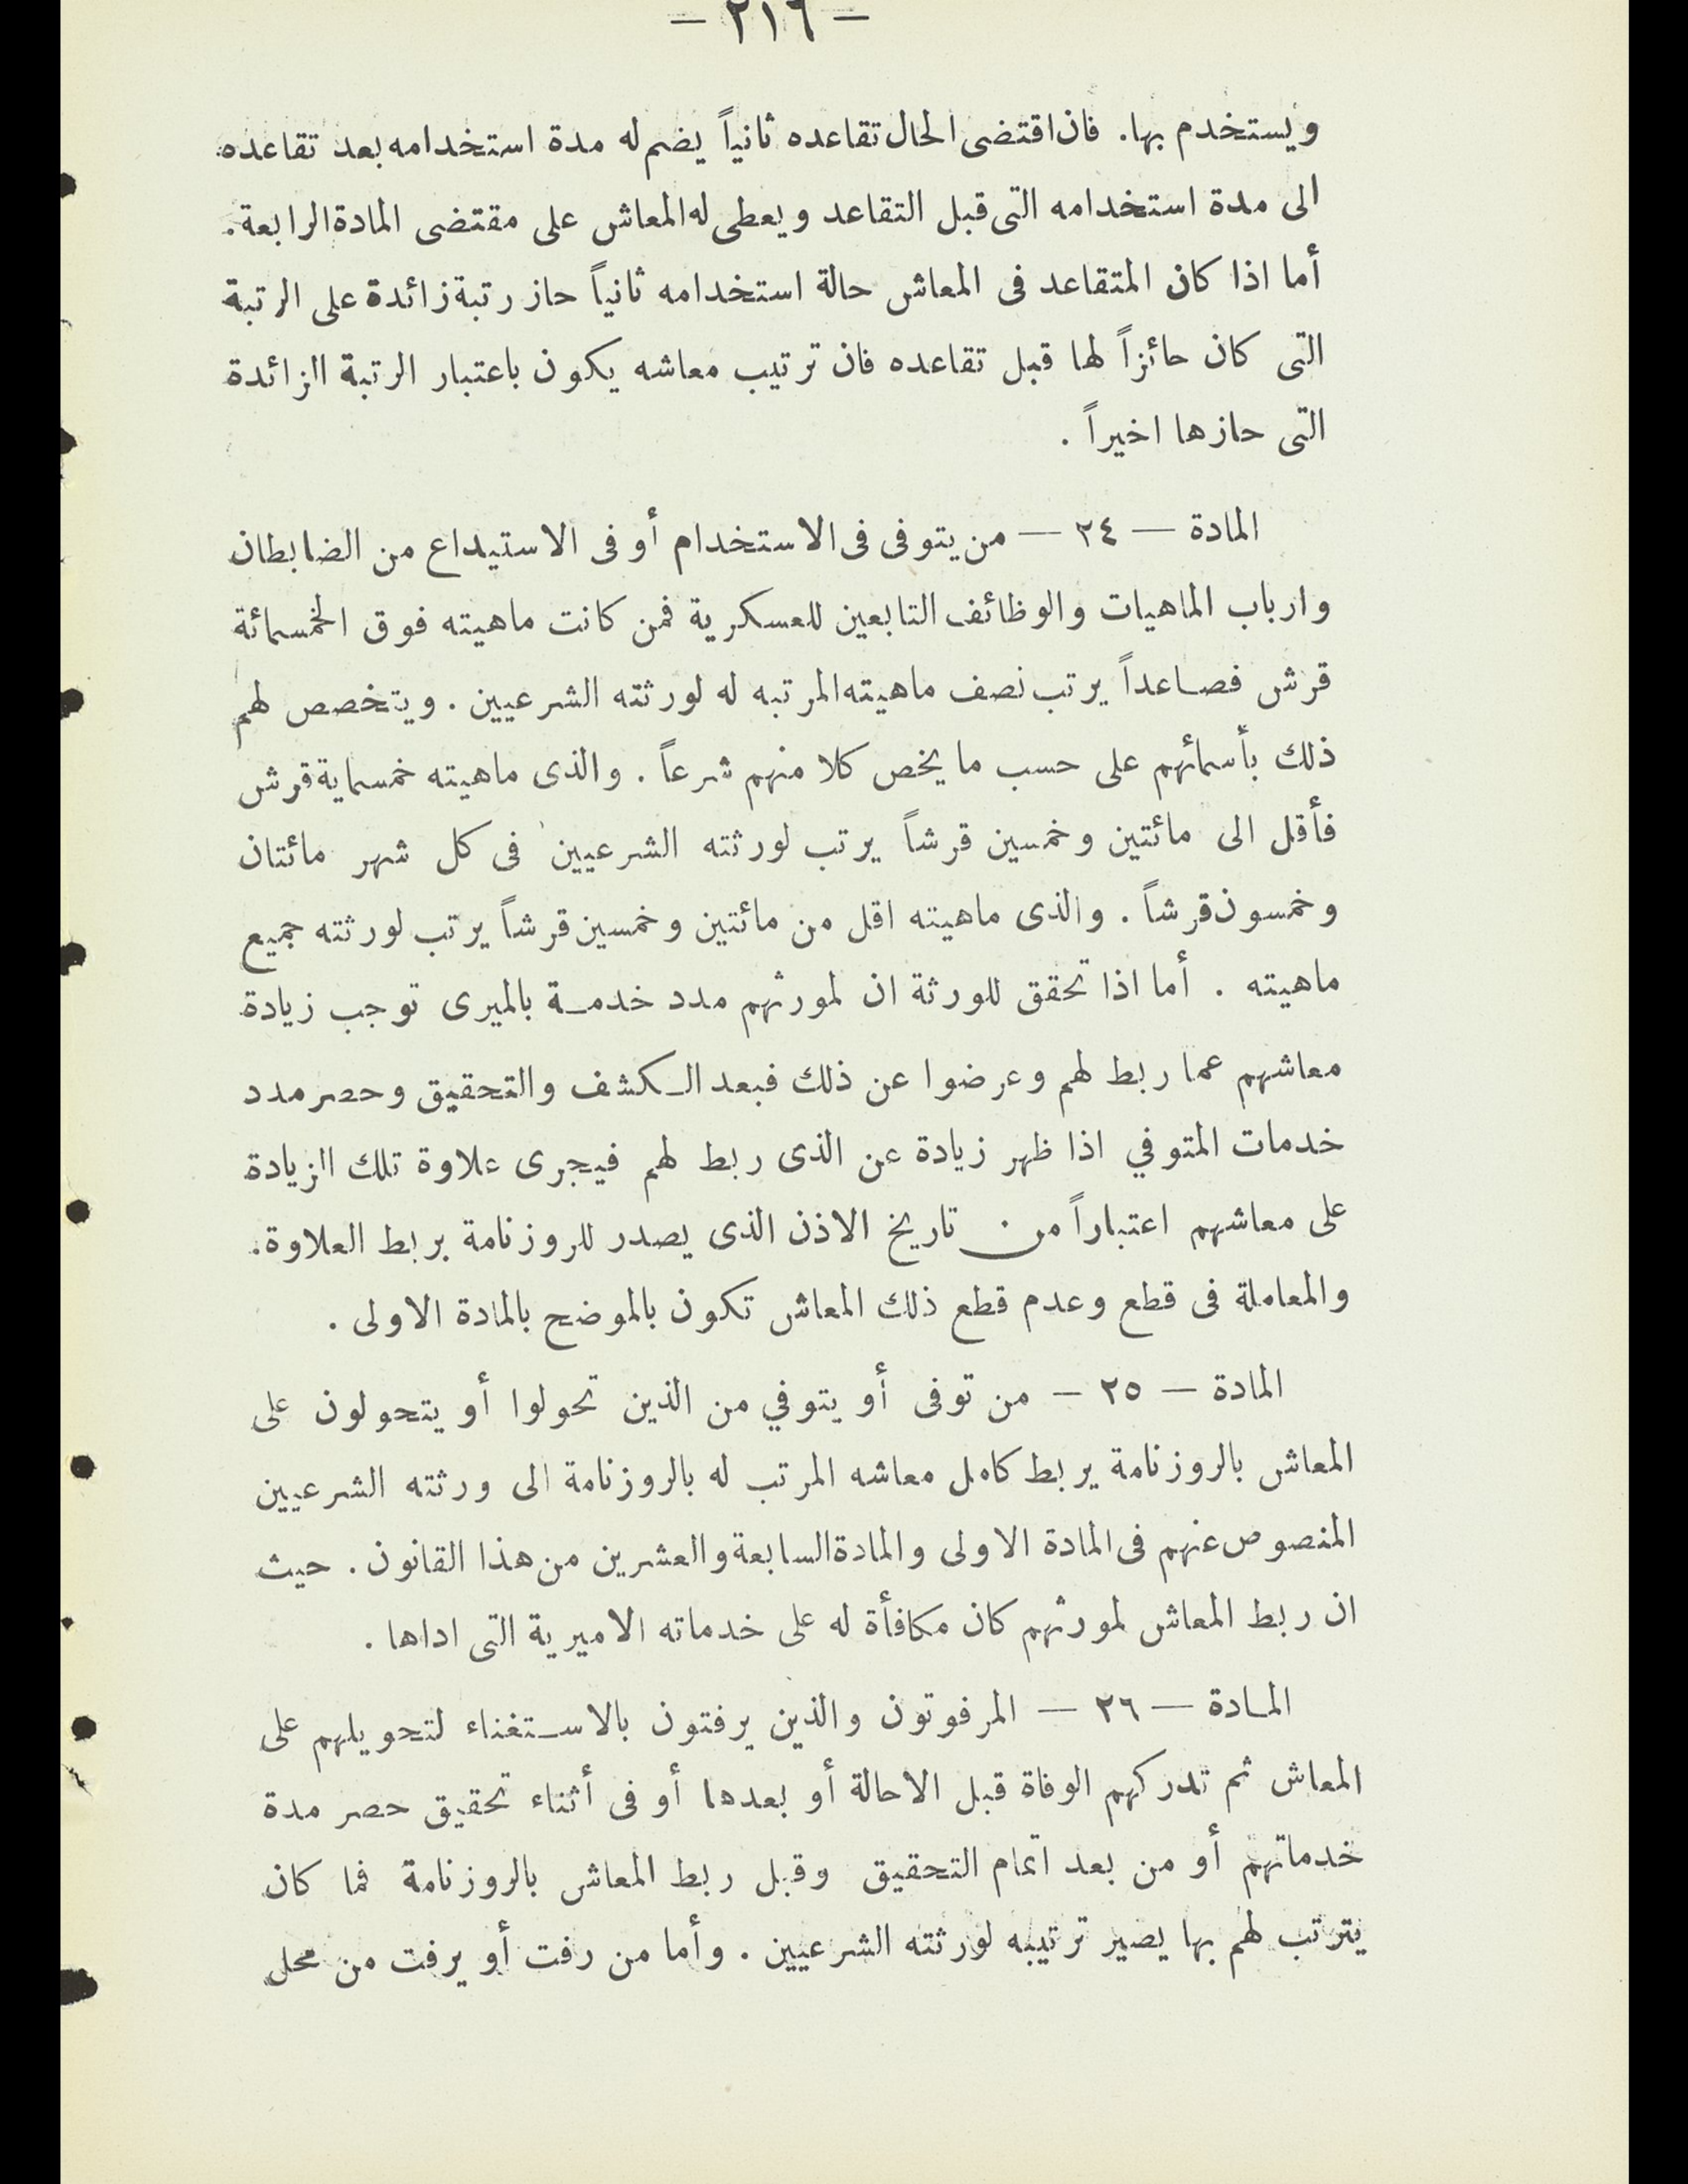 — ٢١٦ —
ويستخدم بها. فان اقتضى الحال تقاعده ثانياً يضم له مدة استخدامه بعد تقاعده
الى مدة استخدامه التى قبل التقاعد ويعطى له المعاش على مقتضى المادة الرابعة.
أما اذا كان المتقاعد فى المعاش حالة استخدامه ثانياً حاز رتبة زائدة على الرتبة
التى كان حائزاً لها قبل تقاعده فان ترتيب معاشه يكون باعتبار الرتبة الزائدة
التى حازها اخيراً .
المادة — ٢٤ — من يتوفى فى الاستخدام أو فى الاستيداع من الضابطان
وارباب الماهيات والوظائف التابعين للعسكرية فمن كانت ماهيته فوق الخمسمائة
قرش فصاعداً يرتب نصف ماهيته المرتبه له لورثته الشرعيين . ويتخصص لهم
ذلك بأسمائهم على حسب ما يخص كلا منهم شرعاً . والذى ماهيته خمسماية قرش
فأقل الى مائتين وخمسين قرشاً يرتب لورثته الشرعيين فى كل شهر مائتان
وخمسون قرشاً . والذى ماهيته اقل من مائتين وخمسين قرشاً يرتب لورثته جميع
ماهيته . أما اذا تحقق للورثة ان لمورثهم مدد خدمة بالميرى توجب زيادة
معاشهم عما ربط لهم وعرضوا عن ذلك فبعد الكشف والتحقيق وحصر مدد
خدمات المتوفي اذا ظهر زيادة عن الذى ربط لهم فيجرى علاوة تلك الزيادة
على معاشهم اعتباراً من تاريخ الاذن الذى يصدر للروزنامة بربط العلاوة.
والمعاملة فى قطع وعدم قطع ذلك المعاش تكون بالموضح بالمادة الاولى .
المادة — ٢٥ — من توفى أو يتوفي من الذين تحولوا أو يتحولون على
المعاش بالروزنامة يربط كامل معاشه المرتب له بالروزنامة الى ورثته الشرعيين
المنصوص عنهم فى المادة الاولى والمادة السابعة والعشرين من هذا القانون . حيث
ان ربط المعاش لمورثهم كان مكافأة له على خدماته الاميرية التى اداها .
المادة — ٢٦ — المرفوتون والذين يرفتون بالاستغناء لتحويلهم على
المعاش ثم تدركهم الوفاة قبل الاحالة أو بعدها أو فى أثناء تحقيق حصر مدة
خدماتهم أو من بعد اتمام التحقيق وقبل ربط المعاش بالروزنامة فما كان
يترتب لهم بها يصير ترتيبه لورثته الشرعيين . وأما من رفت أو يرفت من محل